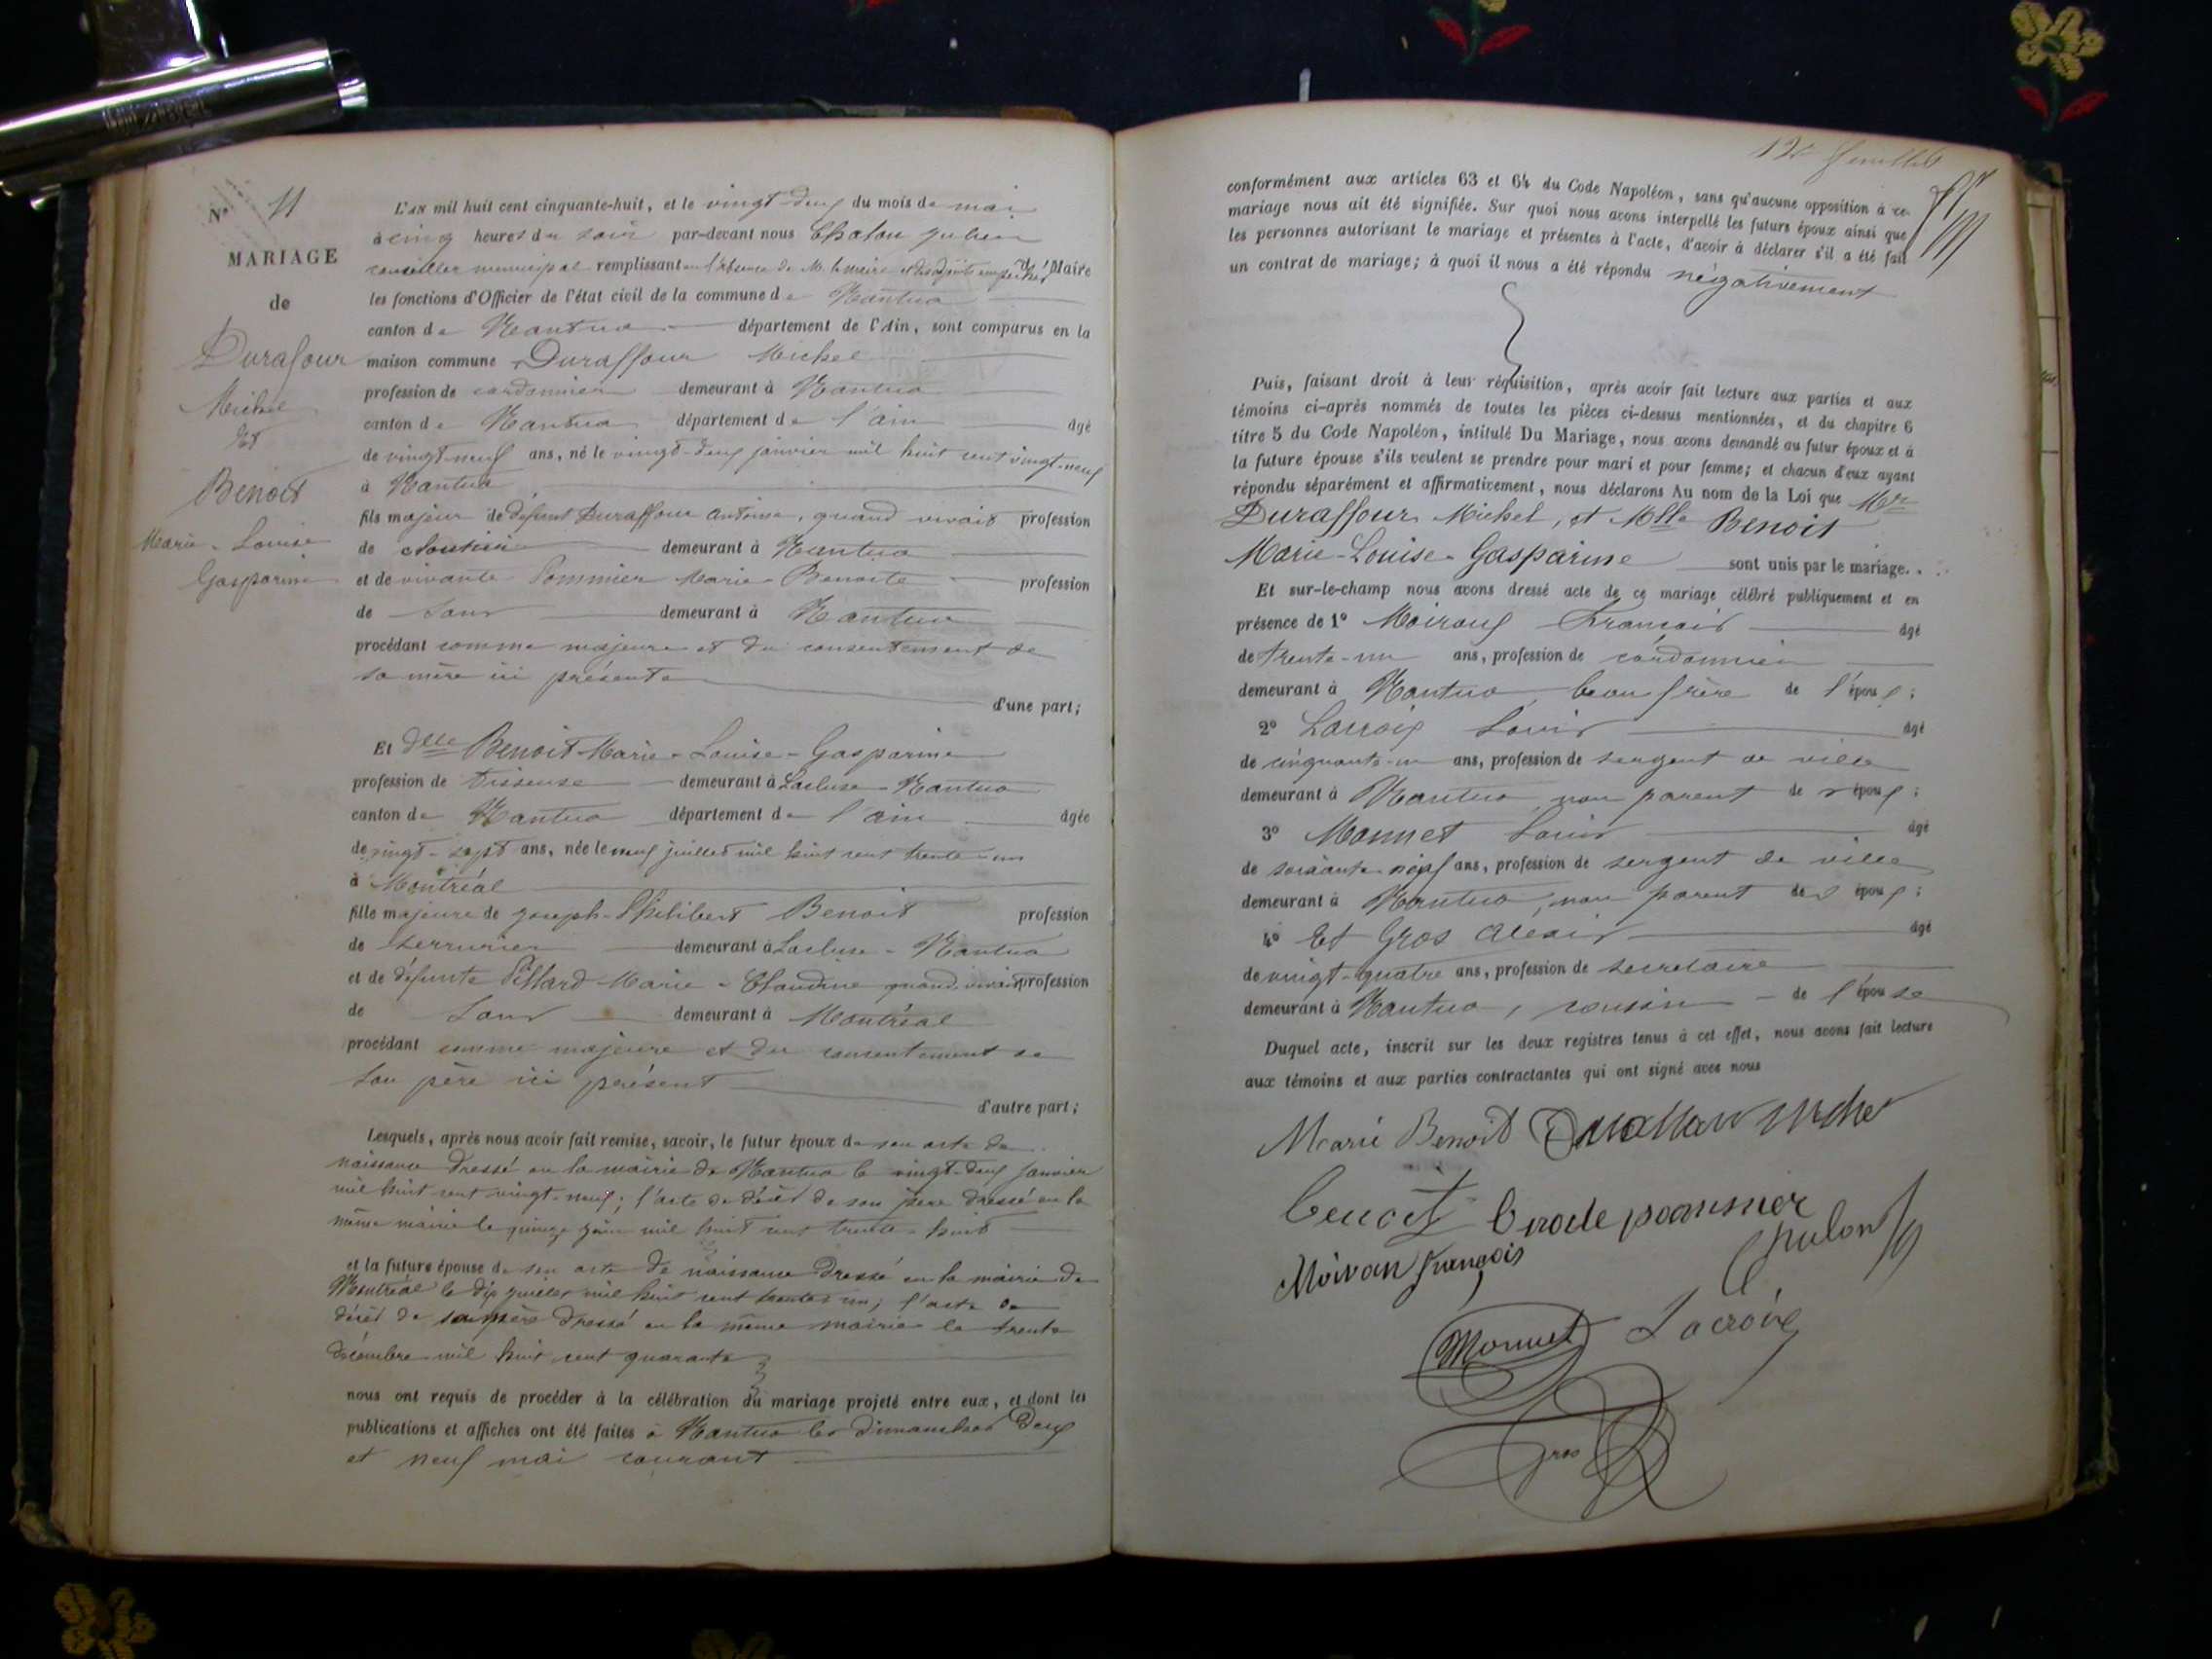 N° 11
MARIAGE
de
Durafour
Michel
Et
Benoit
Marie-Louise
Gasparine
L'AN mil huit cent cinquante-huit, et le vingt-deux du mois de mai
à cinq heures du soir par-devant nous Chalon Julien
conseiller municipal remplissant en l'absence de M. le maire et des adjoints empêchés Maire
les fonctions d'Officier de l'état civil de la commune de Nantua
canton de Nantua département de l'Ain, sont comparus en la
maison commune Duraffour Michel
profession de cordonnier demeurant à Nantua
canton de Nantua département de l'ain âgé
de vingt-neuf ans, né le vingt-deux janvier mil huit cent vingt-neuf
à Nantua
fils majeur de défunt Duraffour Antoine, quand vivait profession
de cloutier demeurant à Nantua
et de vivante Pommier Marie-Benoite profession
de sans demeurant à Nantua
procédant comme majeur et du consentement de
sa mère ici présente
d'une part;
Et dlle Benoit Marie-Louise-Gasparine
profession de tisseuse demeurant à Lacluse-Nantua
canton de Nantua département de l'ain âgée
de vingt-sept ans, née le neuf juillet mil huit cent trente-un
à Montréal
fille majeure de Joseph-Philibert Benoit profession
de serrurier demeurant à Lacluse-Nantua
et de défunte Pillard Marie-Claudine quand vivait profession
de sans demeurant à Montréal
procédant comme majeure et du consentement de
son père ici présent
d'autre part;
Lesquels, après nous avoir fait remise, savoir, le futur époux de son acte de
naissance dressé en la mairie de Nantua le vingt-deux janvier
mil huit cent vingt-neuf; l'acte de décès de son père dressé en la
même mairie le quinze juin mil huit cent trente-huit
et la future épouse de son acte de naissance dressé en la mairie de
Montréal le dix juillet mil huit cent trente-un; l'acte de
décès de sa mère dressé en la même mairie le trente
décembre mil huit cent quarante
nous ont requis de procéder à la célébration du mariage projeté entre eux, et dont les
publications et affiches ont été faites à Nantua les dimanches deux
et neuf mai courant
12e feuillet
conformément aux articles 63 et 64 du Code Napoléon, sans qu'aucune opposition à ce
mariage nous ait été signifiée. Sur quoi nous avons interpellé les futurs époux ainsi que
les personnes autorisant le mariage et présentes à l'acte, d'avoir à déclarer s'il a été fait
un contrat de mariage; à quoi il nous a été répondu négativement
Puis, faisant droit à leur réquisition, après avoir fait lecture aux parties et aux
témoins ci-après nommés de toutes les pièces ci-dessus mentionnées, et du chapitre 6
titre 5 du Code Napoléon, intitulé Du Mariage, nous avons demandé au futur époux et à
la future épouse s'ils veulent se prendre pour mari et pour femme; et chacun d'eux ayant
répondu séparément et affirmativement, nous déclarons Au nom de la Loi que Mr
Duraffour Michel, et Mlle Benoit
Marie-Louise-Gasparine sont unis par le mariage.
Et sur-le-champ nous avons dressé acte de ce mariage célébré publiquement et en
présence de 1° Moiroux François âgé
de trente-un ans, profession de cordonnier
demeurant à Nantua, beau frère de l'époux;
2° Lacroix Louis âgé
de cinquante-un ans, profession de sergent de ville
demeurant à Nantua, non parent des époux;
3° Monnet Louis âgé
de soixante-neuf ans, profession de sergent de ville
demeurant à Nantua, non parent des époux;
4° Et Gros Alexis âgé
de vingt-quatre ans, profession de secrétaire
demeurant à Nantua, cousin de l'épouse
Duquel acte, inscrit sur les deux registres tenus à cet effet, nous avons fait lecture
aux témoins et aux parties contractantes qui ont signé avec nous
Marie Benoit Duraffour Michel
Benoit pommier
Moiroux françois Chalon
Monnet Lacroix
Gros